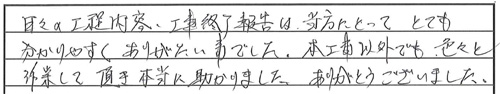 日々の工程内容、工事終了報告は、当方にとって とても
分かりやすく ありがたい事でした。本工事以外でも 色々と
作業して 頂き 本当に助かりました。ありがとうございました。